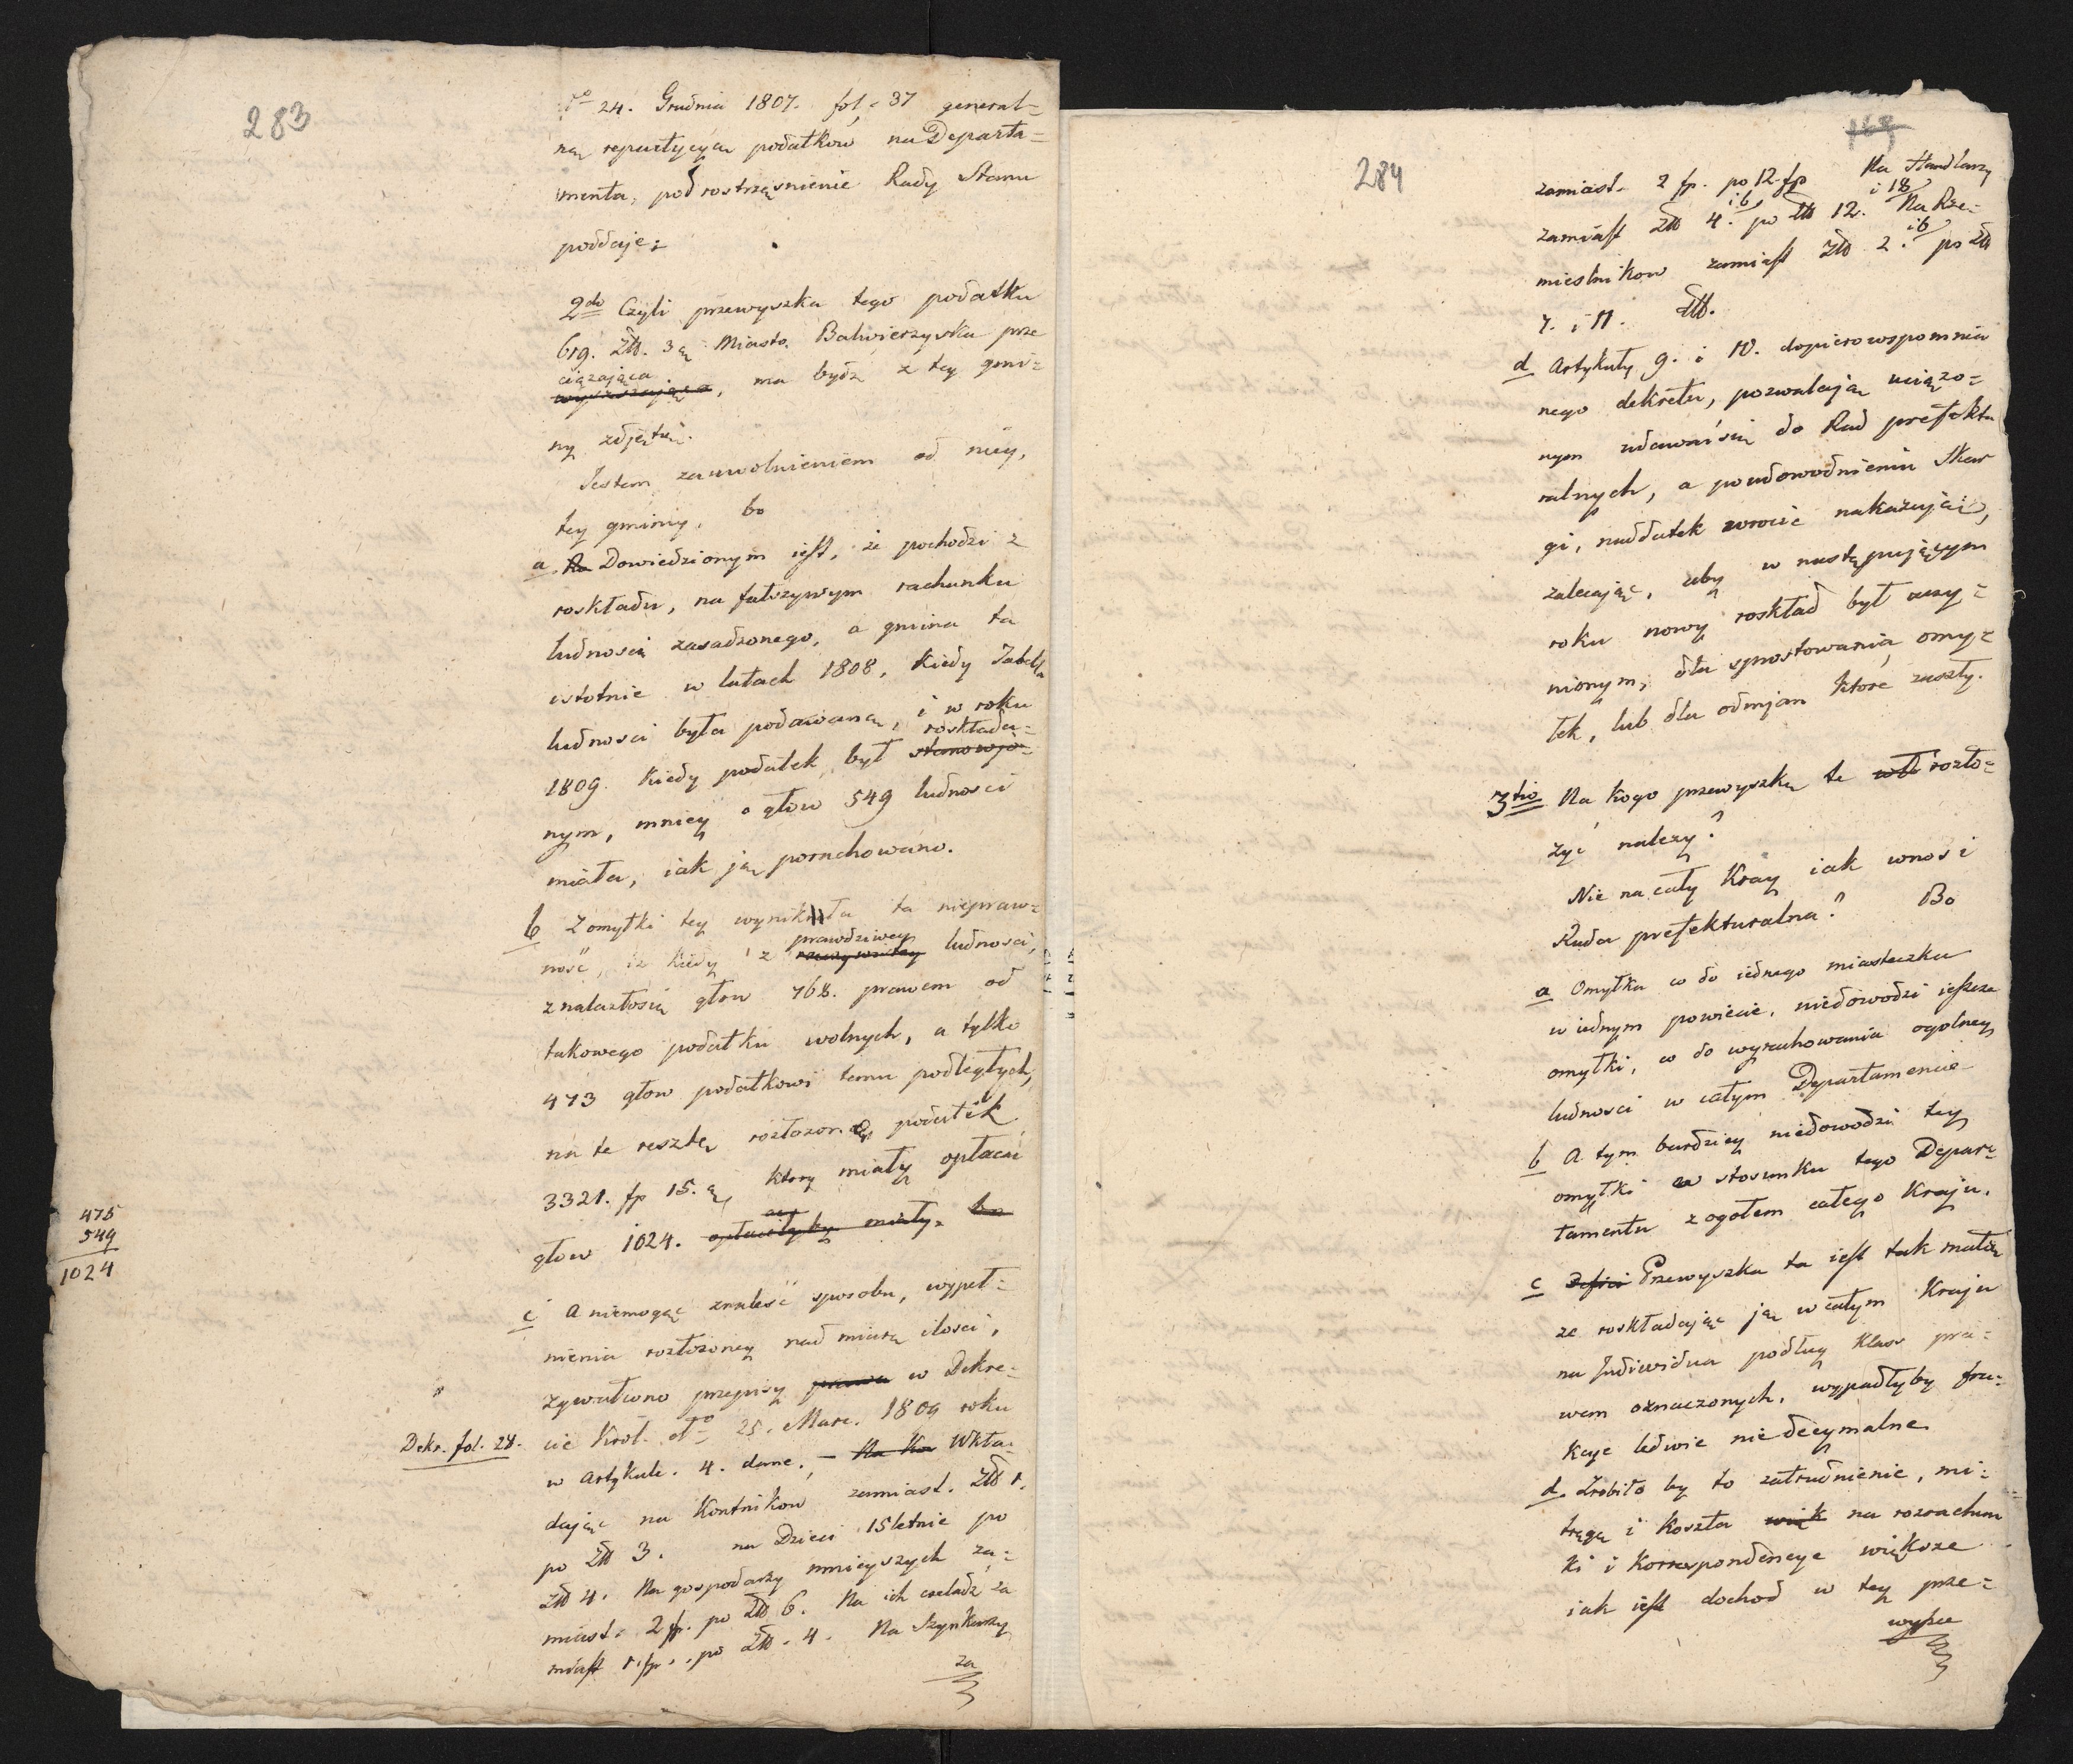 283
do 24. Grudnia 1807. fol. 37 general=
ną repartycyą podatkow na Departa=
menta, pod rostrząsnienie Rady Stanu
poddaje:
2do Czyli przewyszka tego podatku
619. Złł. 3 gr Miasto Balwierzyska prze
ciązaiąca
, ma bydź z tey gmi=
ny zdjętą.
Jestem za uwolnieniem od niey,
tey gminy, bo
a. Dowiedzionym iest, że pochodzi z
roskładu, na fałszywym rachunku
ludnosci zasadzonego, a gmina ta
istotnie w latach 1808, kiedy Tabella
ludnosci była podawana, i w roku
roskłada=
1809. kiedy podatek był stanowio=
nym, mniey o głow 549 ludnosci
miała, iak ją porachowano.
b Z omyłki tey wynikła ta niepraw=
prawdziwey
ność, iż kiedy z rzeczywistey ludnosci,
znalazłosię głow 768. prawem od
takowego podatku wolnych, a tylko
473 głow podatkowi temu podległych,
na te resztę rozłozono podatek
3321. fp 15. gr, ktory miały opłacać
głow 1024. opłaciłyby miały. bo
475
549
1024
c A niemogąc znaleść sposobu, wypeł=
nienia rozłożoney nad miarę ilosci,
zgwałcono przepisy prawa w Dekre=
Dekr. fol. 28.
cie Krol. do 25. Marc. 1809 roku
w Artykule. 4. dane, — Na Ko Wkła=
dając na Kontnikow zamiast. Złł 1.
po Złł 3. na Dzieci 15letnie po
Złł 4. Na gospodarzy mnieyszych za=
miast. 2 fp. po Złł 6. Na ich czeladź za
miast 1. fp. po Złł. 4. Na Szynkarzy
za
284
zamiast. 2 fp. po 12. fp Na Handlarzy
i 6 i 18
zamiast Złł 4. po Złł 12. Na Rze=
i 6
mieslnikow zamiast Złł 2. po Złł
7. i 11. Złł.
d Artykuły 9. i 10. dopiero wspomnia
nego dekretu, pozwalają uciązo=
nym udawać się do Rad prefektu
ralnych, a po udowodnieniu Skar
gi, naddatek zwrocic nakazując,
zalecając, aby w następującym
roku nowy roskład był uczy=
nionym, dla sprostowania omy=
łek, lub dla odmian które zaszły.
3tio Na kogo przewyszkę te rozło=
żyć nalezy?
Nie na cały Kray iak wnosi
Rada prefekturalna? Bo
a Omyłka co do iednego miasteczka
w iednym powiecie, niedowodzi ieszcze
omyłki, co do wyrachowania ogolney
ludnosci w całym Departamencie
b A tym bardziey niedowodzi tey
omyłki w stosunku tego Depar=
tamentu z ogołem całego Kraju.
c Przewyszka ta iest tak małą
ze roskładając ją w całym Kraju
na Jndiwidua podług Klass pra=
wem oznaczonych, wypadłyby fra=
kcye ledwie nie decymalne
d Zrobiło by to zatrudnienie, mi=
tręgę i koszta na rozrachun
ki i korrespondencye większe
iak iest dochod w tey prze=
wyszce